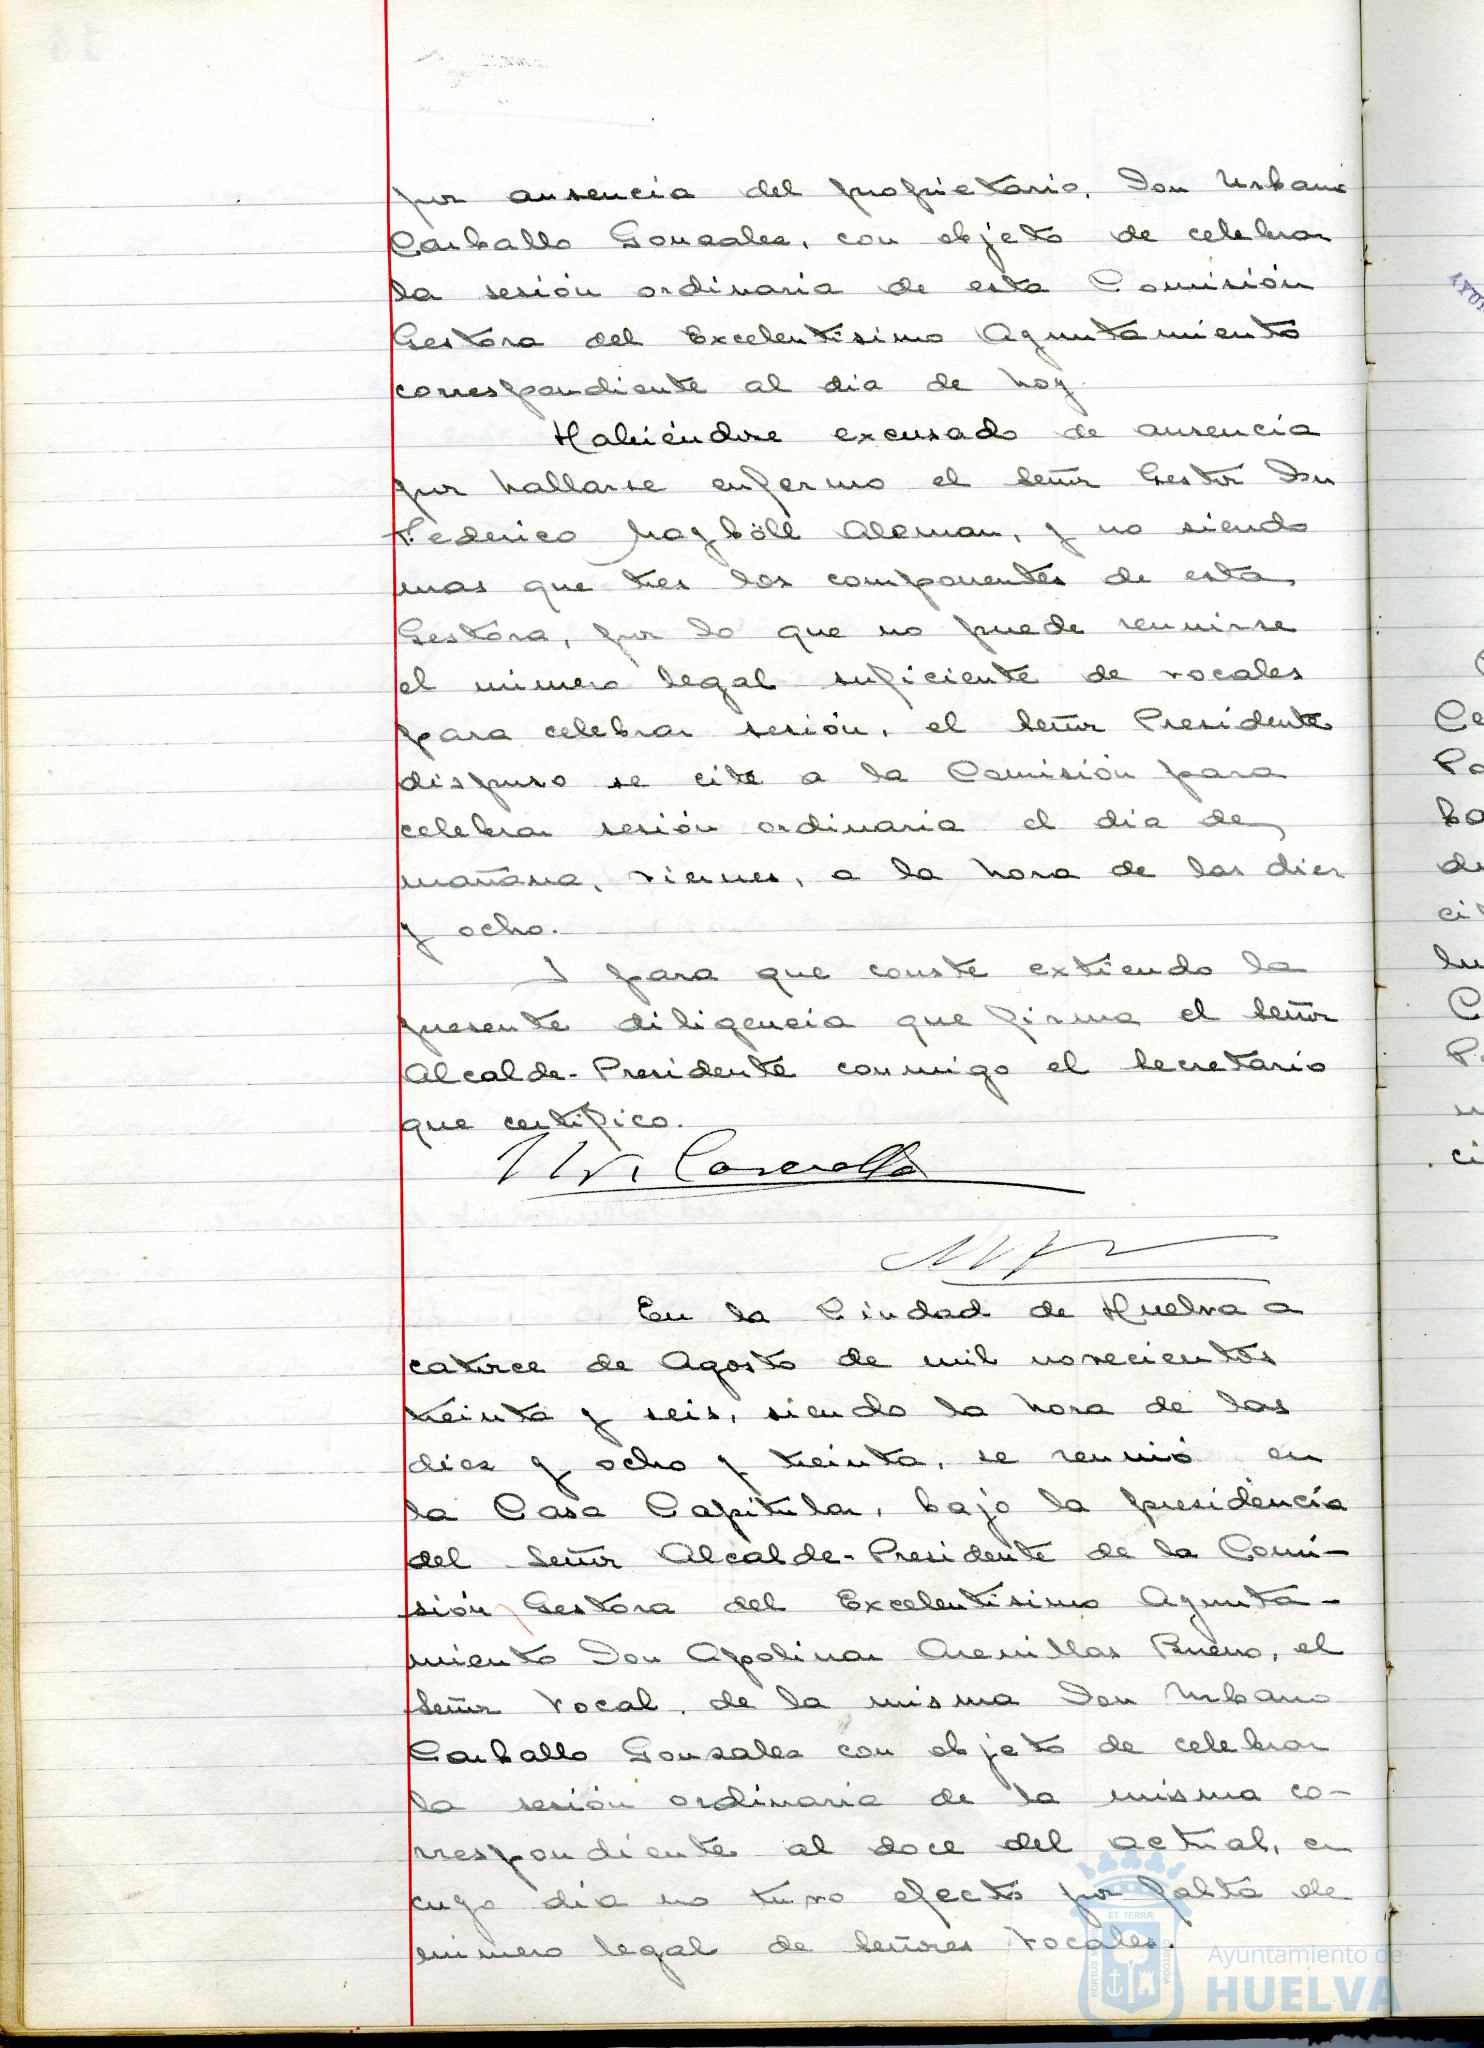 por ausencia del propietario, Don Urbano
Carballo Gonzalez, con objeto de celebrar
la sesión ordinaria de esta Comisión
Gestora del Excelentísimo Ayuntamiento
correspondiente al dia de hoy.
Habiéndose excusado de ausencia
por hallarse enfermo el Señor Gestor Don
Federico Mayböll Aleman, y no siendo
mas que tres los componentes de esta
Gestora, por lo que no puede reunirse
el número legal suficiente de vocales
para celebrar sesión, el Señor Presidente
dispuso se cite a la Comisión para
celebrar sesión ordinaria el dia de
mañana, viernes, a la hora de las diez
y ocho.
Y para que conste extiendo la
presente diligencia que firma el Señor
Alcalde-Presidente conmigo el Secretario
que certifico.
Carballo
En la Ciudad de Huelva a
catorce de Agosto de mil novecientos
treinta y seis, siendo la hora de las
diez y ocho y treinta, se reunió en
la Casa Capitular, bajo la presidencia
del Señor Alcalde-Presidente de la Comi-
sión Gestora del Excelentísimo Ayunta-
miento Don Apolinar Arenillas Bueno, el
Señor Vocal de la misma Don Urbano
Carballo Gonzalez con objeto de celebrar
la sesión ordinaria de la misma co-
rrespondiente al doce del actual, en
cuyo día no tuvo efecto por falta de
número legal de Señores Vocales.
ET TERRÆ
PORTUS
CUSTODIA
Ayuntamiento de
HUELVA